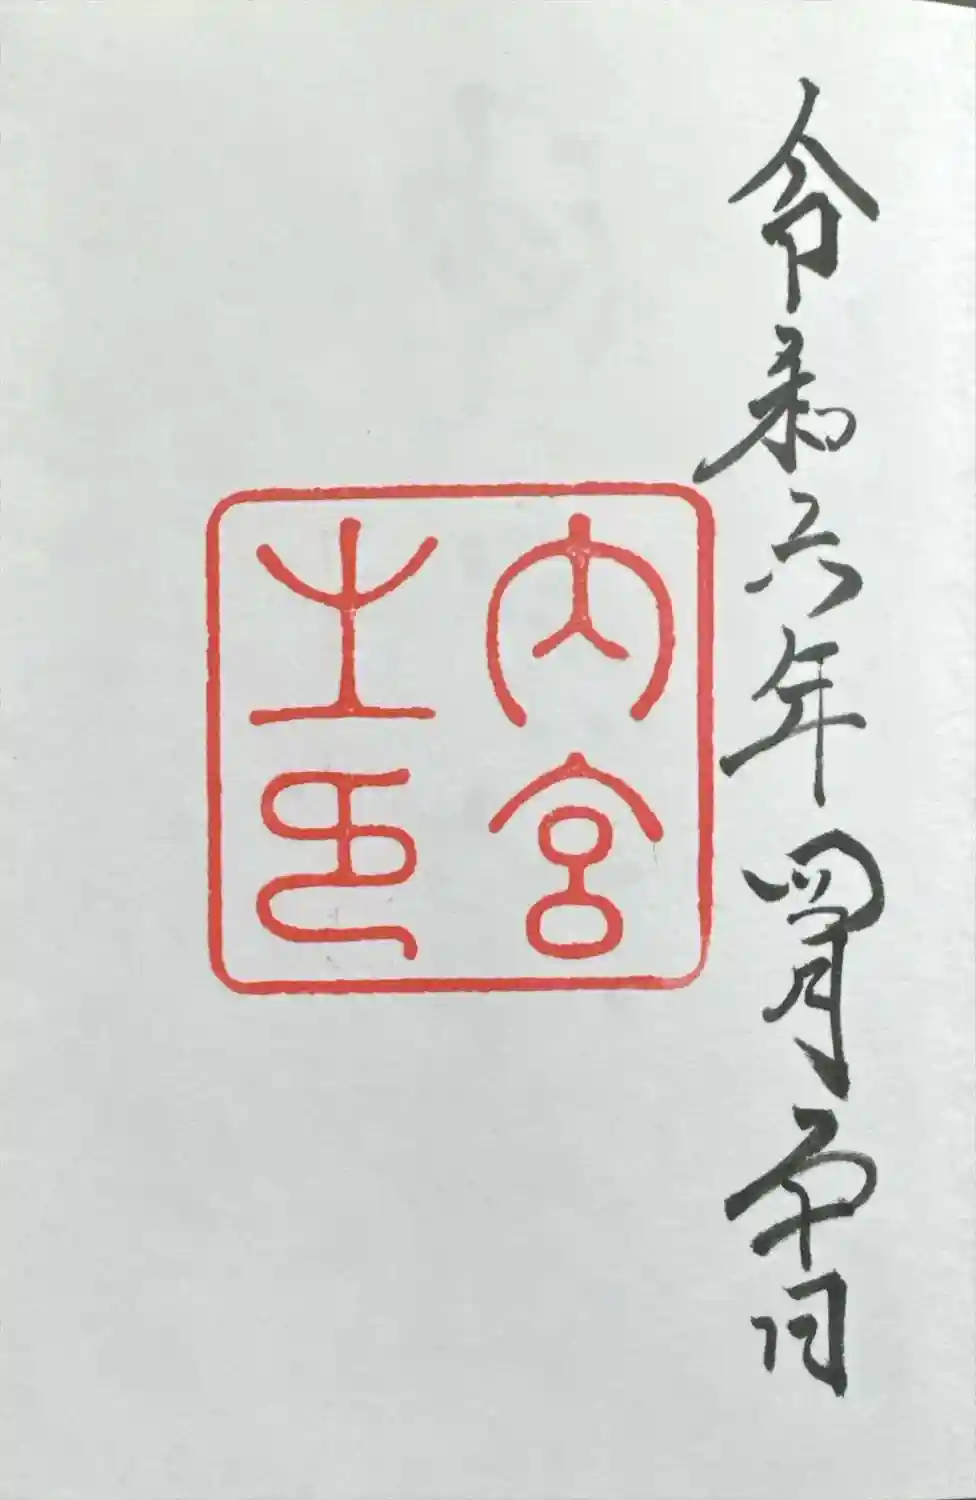 令和六年四月十日
内宮
之印